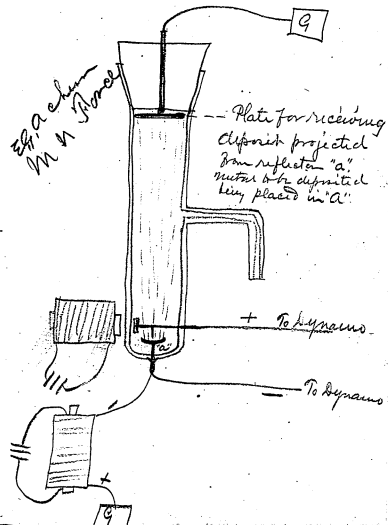 G
Plate for receiving
deposit projected
from reflector "a".
metal to be deposited
being placed in "A".
"a"
+ To Dynamo
- To Dynamo
-
+
G